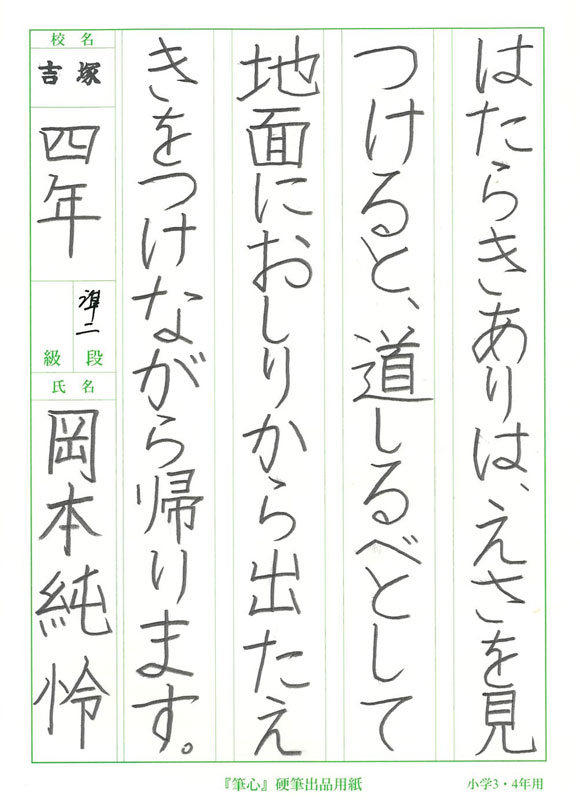 はたらきありは、えさを見
つけると、道しるべとして
地面におしりから出たえ
きをつけながら帰ります。
校名
吉塚
四年
準二
級 段
氏名
岡本純怜
『筆心』硬筆出品用紙
小学3・4年用